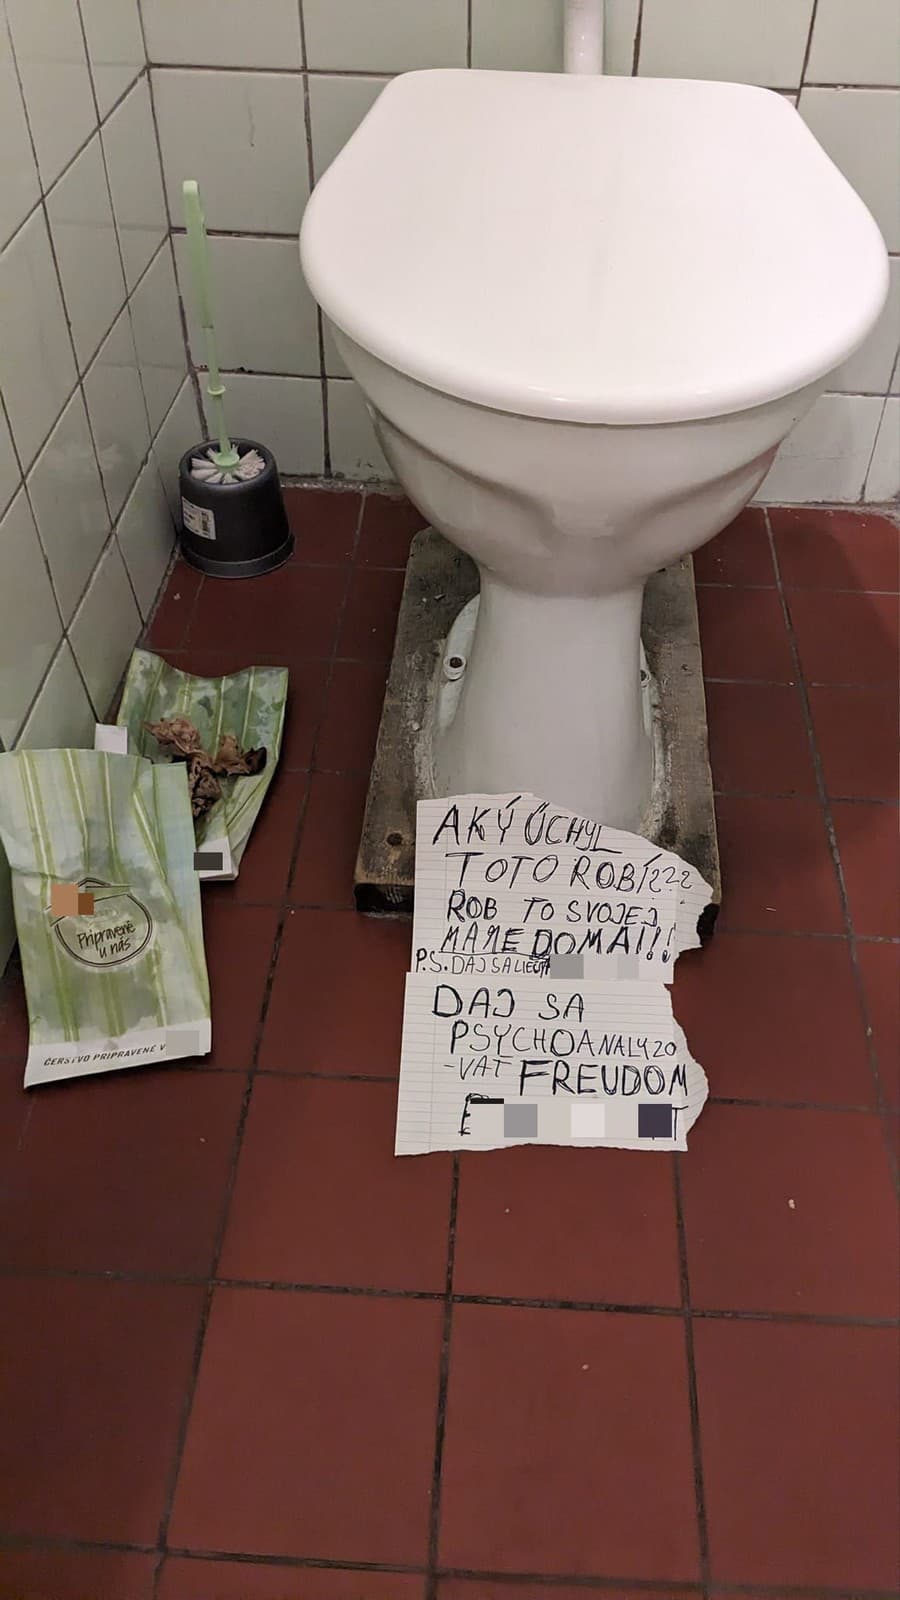 AKÝ ÚCHYL
TOTO ROBÍ???
ROB TO SVOJEJ
MAME DOMA!!!
P.S. DAJ SA LIEČIŤ
DAJ SA
PSYCHOANALYZO
-VAŤ FREUDOM
Pripravené
u nás
ČERSTVO PRIPRAVENÉ V